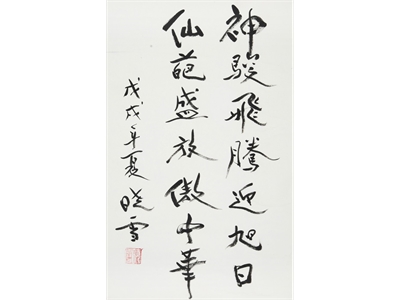 神駿飛騰迎旭日
仙葩盛放傲中華
戊戌年夏晓雪